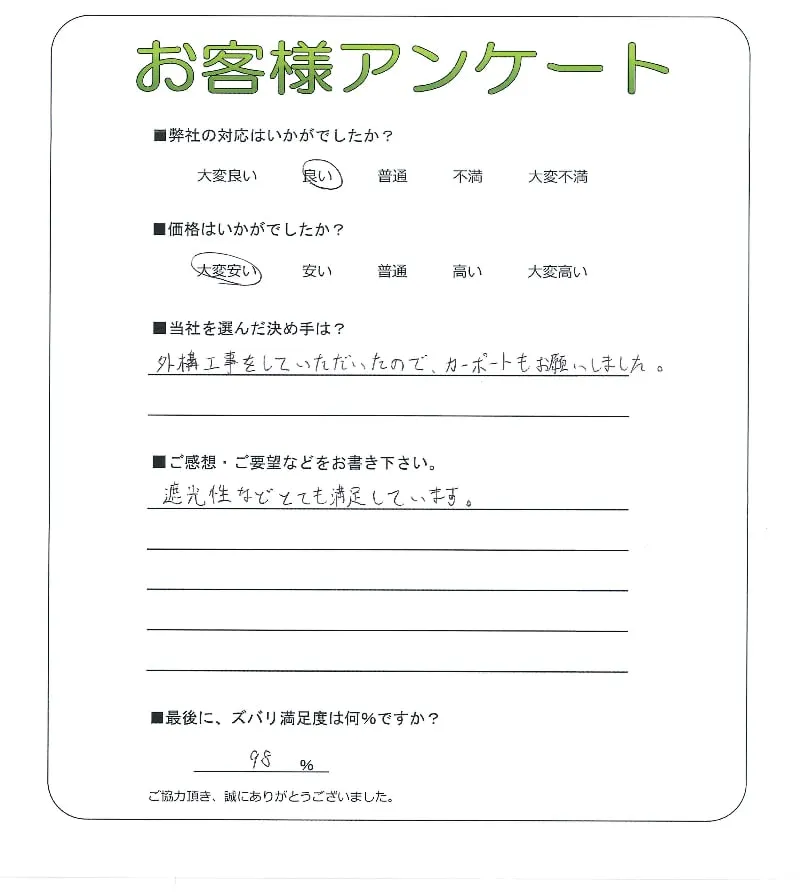 お客様アンケート
■弊社の対応はいかがでしたか？
大変良い 良い 普通 不満 大変不満
■価格はいかがでしたか？
大変安い 安い 普通 高い 大変高い
■当社を選んだ決め手は？
外構工事をしていただいたので、カーポートもお願いしました。
■ご感想・ご要望などをお書き下さい。
遮光性などとても満足しています。
■最後に、ズバリ満足度は何％ですか？
98 %
ご協力頂き、誠にありがとうございました。